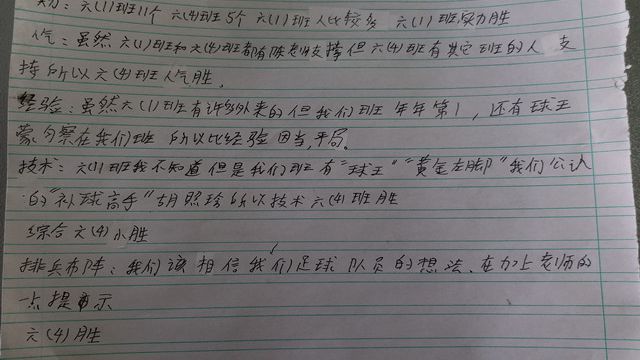 实力：六(1)班11个 六(4)班5个 六(1)班人比较多 六(1)班实力胜
人气：虽然六(1)班和六(4)班都有陈老师支撑但六(4)班有其它班的人 支
持所以六(4)班人气胜，
经验：虽然六(1)班有许多外来的但我们班年年第1，还有球王
蒙向察在我们班 所以比经验因当平局。
技术：六(1)班我不知道但是我们班有“球王”“黄金左脚”我们公认
的“补球高手”胡照珍所以技术六(4)班胜
综合六(4)小胜
排兵布阵：我们该相信我们足球队员的想法，在加上老师的
一点提示
六(4)胜